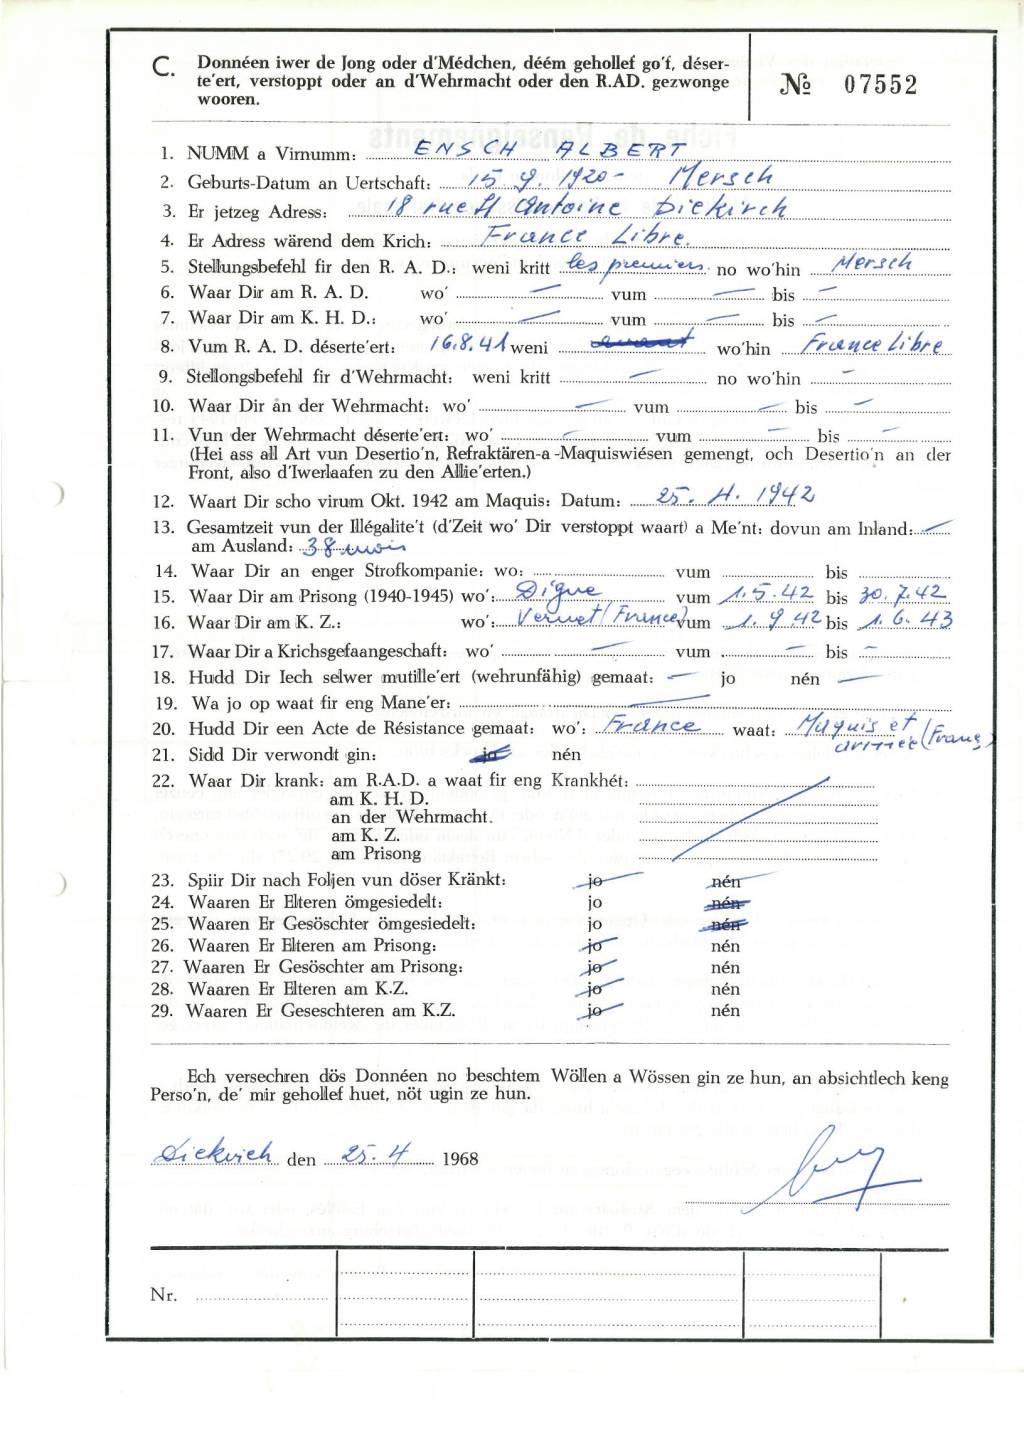 C. Donnéen iwer de Jong oder d'Médchen, déém gehollef go'f, déser-
te'ert, verstoppt oder an d'Wehrmacht oder den R.AD. gezwonge
wooren.
№ 07552
1. NUMM a Virnumm: ENSCH ALBERT
2. Geburts-Datum an Uertschaft: 15 9. 1920- Mersch
3. Er jetzeg Adress: 18 rue St Antoine Diekirch
4. Er Adress wärend dem Krich: France Libre.
5. Stellungsbefehl fir den R. A. D.: weni kritt les premiers no wo'hin Mersch
6. Waar Dir am R. A. D. wo' — vum — bis —
7. Waar Dir am K. H. D.: wo' — vum — bis —
8. Vum R. A. D. déserte'ert: 16.8.41 weni wo'hin France Libre
9. Stellongsbefehl fir d'Wehrmacht: weni kritt — no wo'hin —
10. Waar Dir an der Wehrmacht: wo' — vum — bis —
11. Vun der Wehrmacht déserte'ert: wo' — vum — bis —
(Hei ass all Art vun Desertio'n, Refraktären-a-Maquiswiésen gemengt, och Desertio'n an der
Front, also d'Iwerlaafen zu den Allie'erten.)
12. Waart Dir scho virum Okt. 1942 am Maquis: Datum: 25. 4. 1942
13. Gesamtzeit vun der Illégalite't (d'Zeit wo' Dir verstoppt waart) a Me'nt: dovun am Inland: —
am Ausland: 38 mois
14. Waar Dir an enger Strofkompanie: wo: vum bis
15. Waar Dir am Prisong (1940-1945) wo': Digne vum 1.5.42 bis 30.7.42
16. Waar Dir am K. Z.: wo': Vernet (France) vum 1. 9.42 bis 1. 6. 43
17. Waar Dir a Krichsgefaangeschaft: wo' — vum — bis —
18. Hudd Dir Iech selwer mutille'ert (wehrunfähig) gemaat: — jo nén —
19. Wa jo op waat fir eng Mane'er: —
20. Hudd Dir een Acte de Résistance gemaat: wo': France waat: Maquis et
armée (Franç)
21. Sidd Dir verwondt gin: jo nén
22. Waar Dir krank: am R.A.D. a waat fir eng Krankhét:
am K. H. D.
an der Wehrmacht.
am K. Z.
am Prisong
23. Spiir Dir nach Foljen vun döser Kränkt: jo nén
24. Waaren Er Elteren ömgesiedelt: jo nén
25. Waaren Er Gesöschter ömgesiedelt: jo nén
26. Waaren Er Elteren am Prisong: jo nén
27. Waaren Er Gesöschter am Prisong: jo nén
28. Waaren Er Elteren am K.Z. jo nén
29. Waaren Er Geseschteren am K.Z. jo nén
Ech versechren dös Donnéen no beschtem Wöllen a Wössen gin ze hun, an absichtlech keng
Perso'n, de' mir gehollef huet, nöt ugin ze hun.
Diekirch den 25.4 1968
Nr.